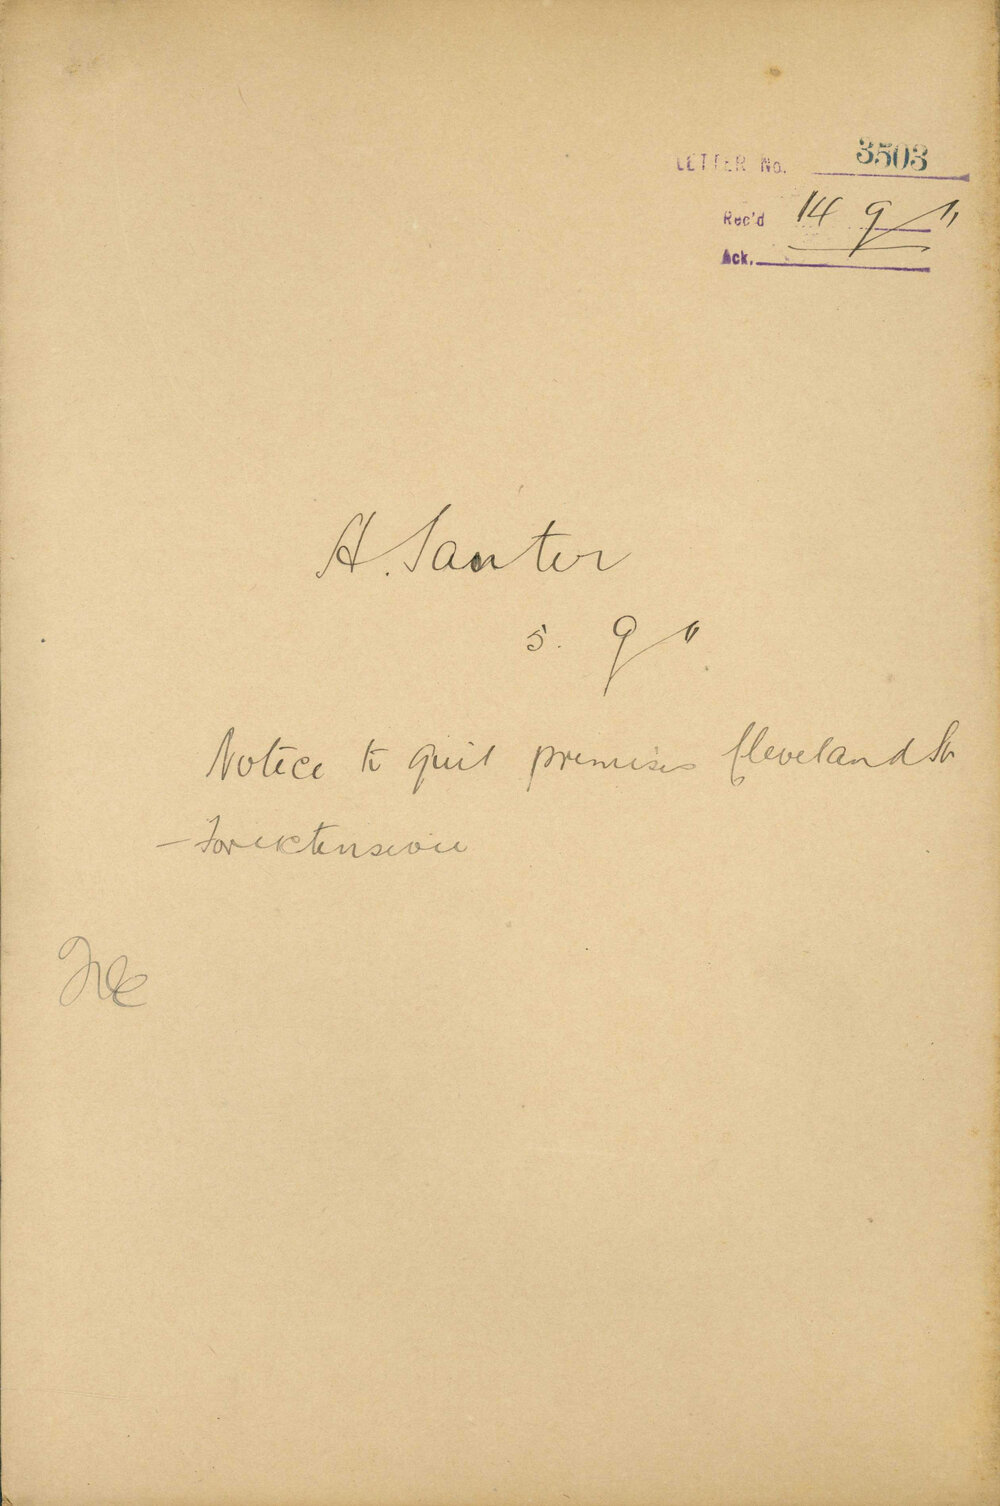 LETTER No. 3503
Rec'd 14 9 11
Ack.
H. Santer
5. 9 11
Notice to quit premises Cleveland St
- For extension